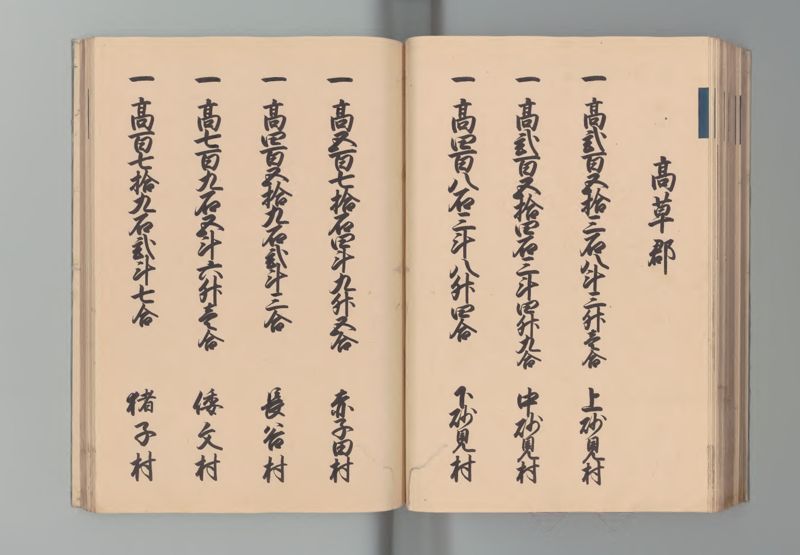 高草郡
一 高弐百五拾三石八斗三升壱合 上砂見村
一 高弐百五拾四石三斗四升九合 中砂見村
一 高四百八石三斗八升四合 下砂見村
一 高五百七拾石四斗九升五合 赤子田村
一 高四百五拾九石弐斗三合 長谷村
一 高七百九石五斗六升壱合 倭文村
一 高百七拾九石弐斗七合 猪子村